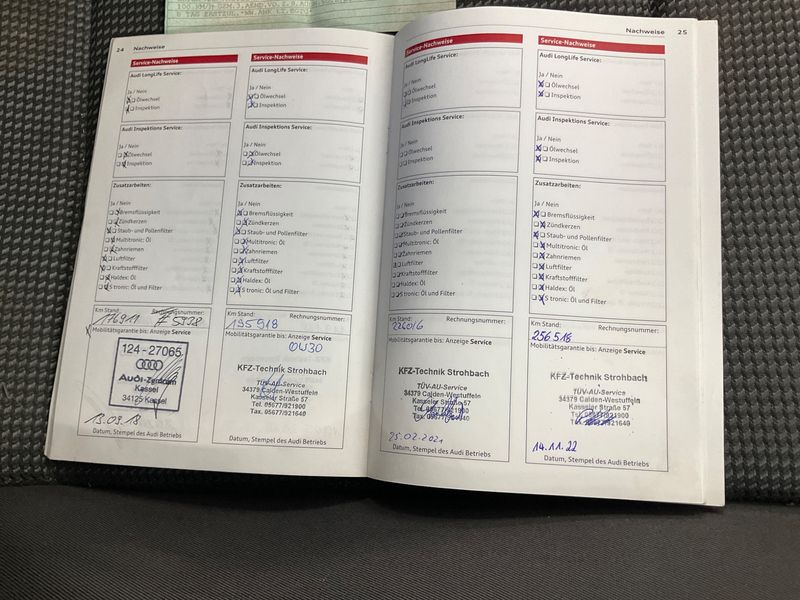 24 Nachweise
Service-Nachweise
Audi LongLife Service:
Ja / Nein
Ölwechsel
Inspektion
Audi Inspektions Service:
Ja / Nein
Ölwechsel
Inspektion
Zusatzarbeiten:
Ja / Nein
Bremsflüssigkeit
Zündkerzen
Staub- und Pollenfilter
Multitronic: Öl
Zahnriemen
Luftfilter
Kraftstofffilter
Haldex: Öl
S tronic: Öl und Filter
Km Stand: Rechnungsnummer:
176911
Mobilitätsgarantie bis: Anzeige Service
124-27065
Audi-Zentrum
Kassel
34125 Kassel
13.09.18
Datum, Stempel des Audi Betriebs
Service-Nachweise
Audi LongLife Service:
Ja / Nein
Ölwechsel
Inspektion
Audi Inspektions Service:
Ja / Nein
Ölwechsel
Inspektion
Zusatzarbeiten:
Ja / Nein
Bremsflüssigkeit
Zündkerzen
Staub- und Pollenfilter
Multitronic: Öl
Zahnriemen
Luftfilter
Kraftstofffilter
Haldex: Öl
S tronic: Öl und Filter
Km Stand: Rechnungsnummer:
195918
Mobilitätsgarantie bis: Anzeige Service
0W30
KFZ-Technik Strohbach
TÜV-AU-Service
34379 Calden-Westuffeln
Kasseler Straße 57
Tel. 05677/921900
Fax. 05677/921640
Datum, Stempel des Audi Betriebs
Nachweise 25
Service-Nachweise
Audi LongLife Service:
Ja / Nein
Ölwechsel
Inspektion
Audi Inspektions Service:
Ja / Nein
Ölwechsel
Inspektion
Zusatzarbeiten:
Ja / Nein
Bremsflüssigkeit
Zündkerzen
Staub- und Pollenfilter
Multitronic: Öl
Zahnriemen
Luftfilter
Kraftstofffilter
Haldex: Öl
S tronic: Öl und Filter
Km Stand: Rechnungsnummer:
226016
Mobilitätsgarantie bis: Anzeige Service
KFZ-Technik Strohbach
TÜV-AU-Service
34379 Calden-Westuffeln
Kasseler Straße 57
25.02.2021
Datum, Stempel des Audi Betriebs
Service-Nachweise
Audi LongLife Service:
Ja / Nein
Ölwechsel
Inspektion
Audi Inspektions Service:
Ja / Nein
Ölwechsel
Inspektion
Zusatzarbeiten:
Ja / Nein
Bremsflüssigkeit
Zündkerzen
Staub- und Pollenfilter
Multitronic: Öl
Zahnriemen
Luftfilter
Kraftstofffilter
Haldex: Öl
S tronic: Öl und Filter
Km Stand: Rechnungsnummer:
256518
Mobilitätsgarantie bis: Anzeige Service
KFZ-Technik Strohbach
TÜV-AU-Service
34379 Calden-Westuffeln
Kasseler Straße 57
14.11.22
Datum, Stempel des Audi Betriebs